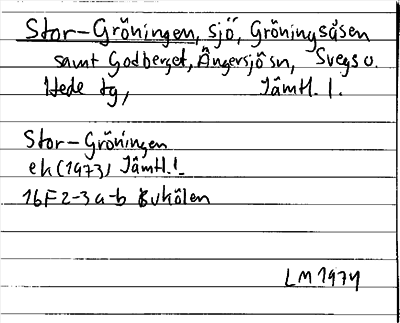 Stor-Gröningen, sjö, Gröningsåsen
samt Godberget, Ängersjö sn, Svegs o.
Hede tg, Jämtl. l.
Stor-Gröningen
ek (1973) Jämtl. l.
16F 2-3 a-b Kukölen
LM 1974